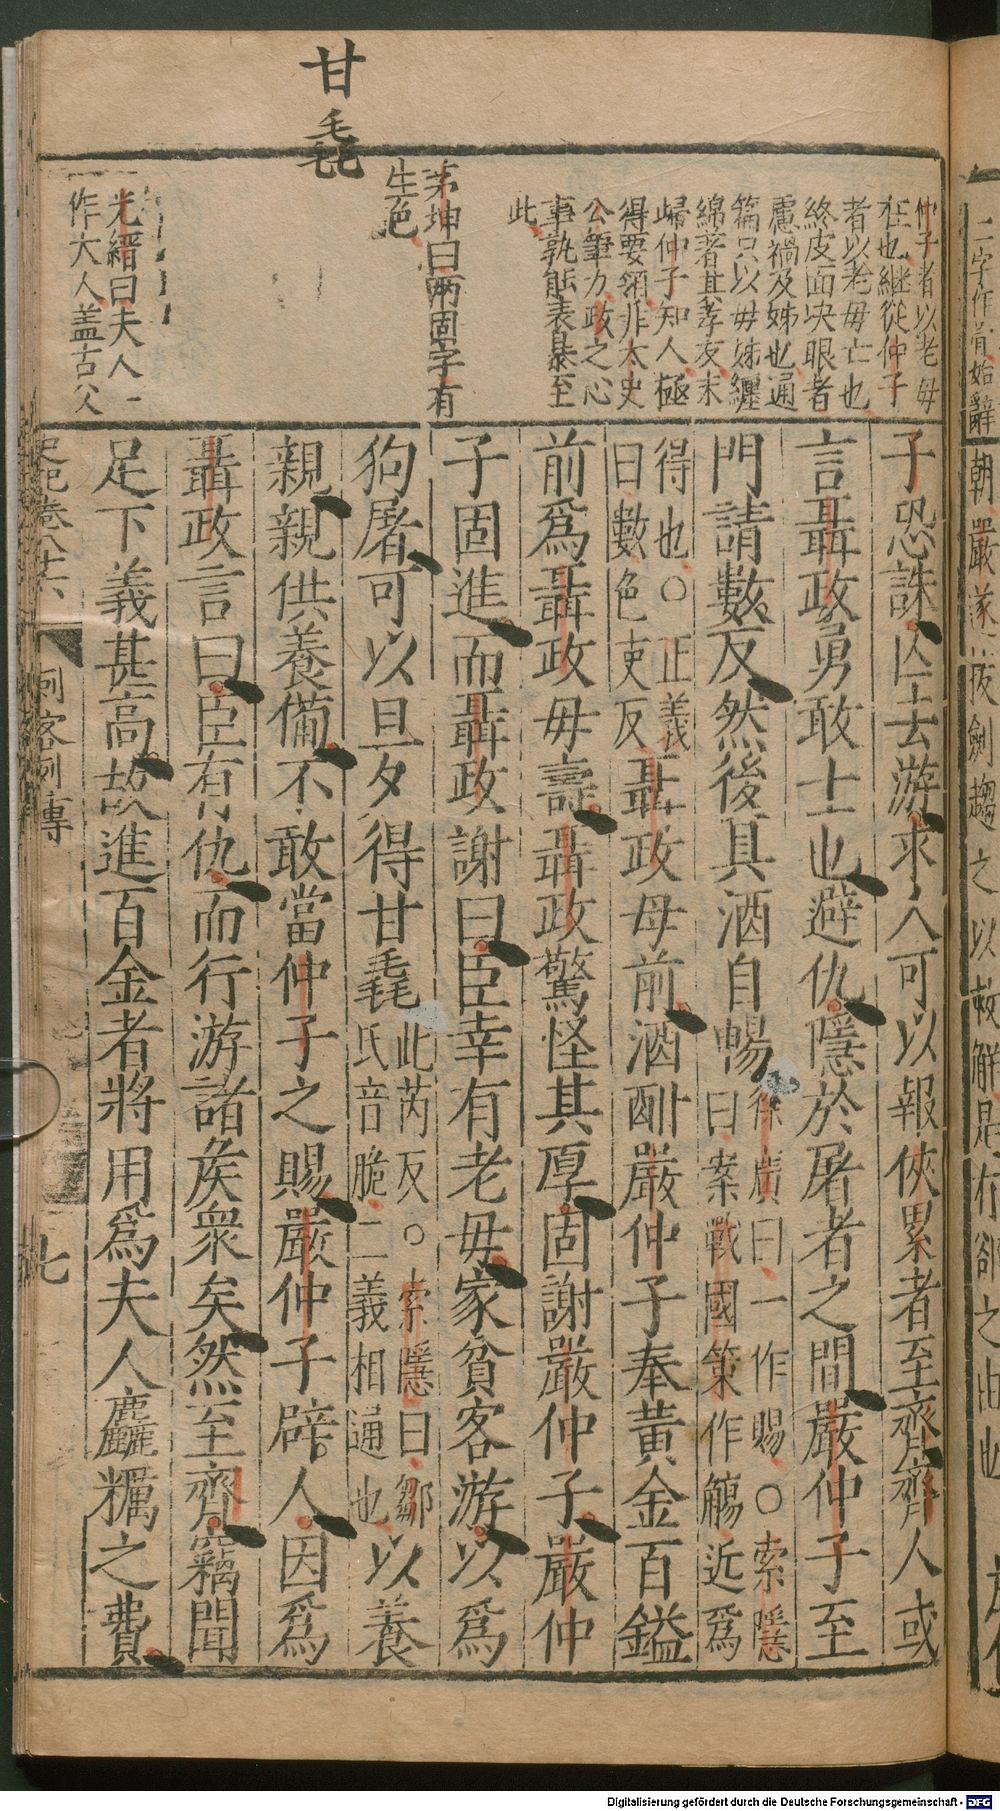 甘毳
仲子者以老母
在也継從仲子
者以老母亡也
終皮面决眼者
慮禍及姊也通
篇只以母姊纏
綿著其孝友末
歸仲子知人極
得要領非太史
公筆力政之心
事孰能表暴至
此
茅坤曰兩固字有
生色
光縉曰夫人一
作大人盖古父
子恐誅亡去游求人可以報俠累者至齊齊人或
言聶政勇敢士也避仇隱於屠者之間嚴仲子至
門請數反然後具酒自暢徐廣曰一作賜○索隱
曰案戰國策作觴近爲
得也○正義
曰數色吏反聶政母前酒酣嚴仲子奉黃金百鎰
前爲聶政母壽聶政驚怪其厚固謝嚴仲子嚴仲
子固進而聶政謝曰臣幸有老母家貧客游以爲
狗屠可以旦夕得甘毳此芮反○索隱曰鄒
氏音脆二義相通也以養
親親供養備不敢當仲子之賜嚴仲子辟人因爲
聶政言曰臣有仇而行游諸矦衆矣然至齊竊聞
足下義甚高故進百金者將用爲夫人麤糲之費
史記卷八十六
刺客列傳
七
朝嚴遂拔劍趨之以救解是有郤之由也
Digitalisierung gefördert durch die Deutsche Forschungsgemeinschaft - DFG